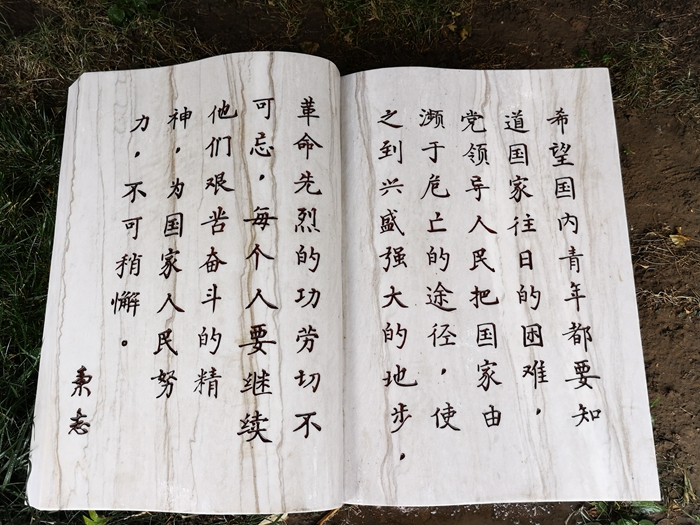 希望国内青年都要知
道国家往日的困难，
党领导人民把国家由
濒于危亡的途径，使
之到兴盛强大的地步，
革命先烈的功劳切不
可忌，每个人要继续
他们艰苦奋斗的精
神，为国家人民努
力，不可稍懈。
秉志